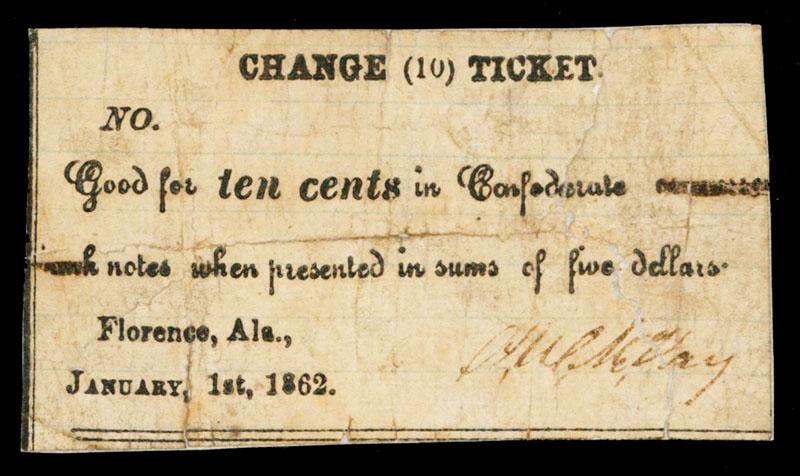 CHANGE (10) TICKET.
NO.
Good for ten cents in Confederate
notes when presented in sums of five dollars.
Florence, Ala.,
JANUARY, 1st, 1862.